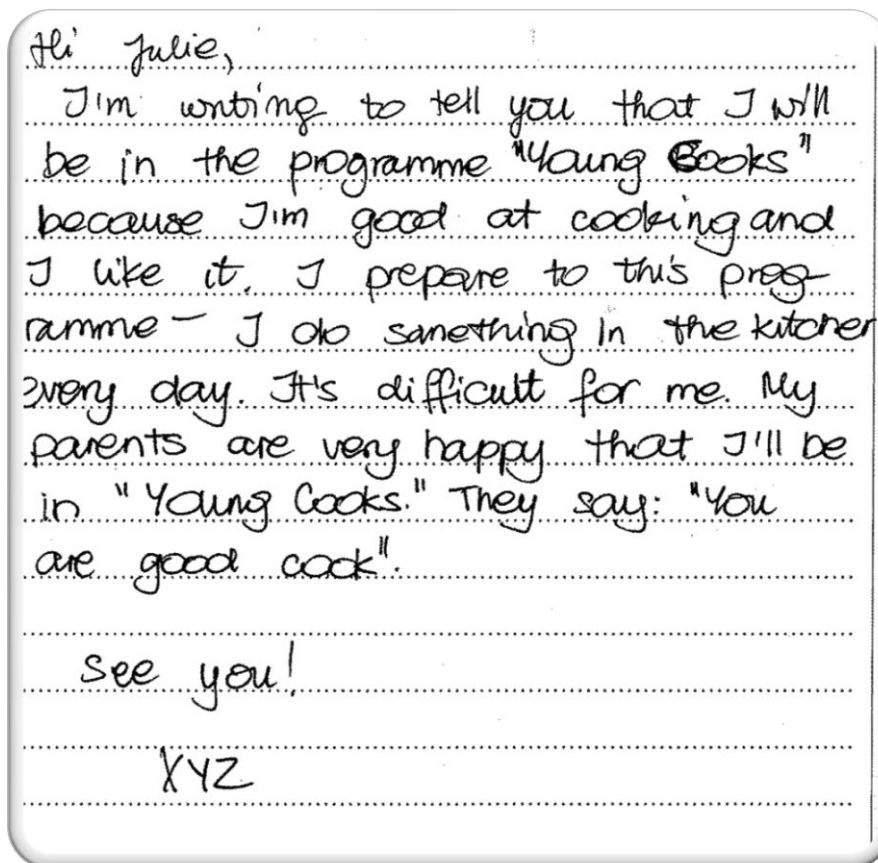 Hi Julie,
I'm writing to tell you that I will
be in the programme "Young Cooks"
because I'm good at cooking and
I like it. I prepare to this prog-
ramme - I do something in the kitchen
every day. It's difficult for me. My
parents are very happy that I'll be
in "Young Cooks." They say: "You
are good cook".
See you!
XYZ